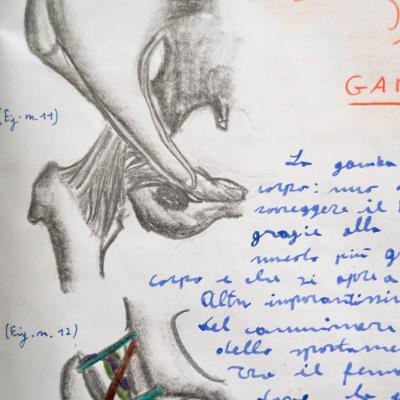 GAM
(Fig. n. 11)
La gamba
corpo: uno
sorreggere il
grazie alla
muscolo più g
corpo e che si apre a
Altri importantissi
(Fig. n. 12)
del camminare
dello spostame
tra il femo
dove lo